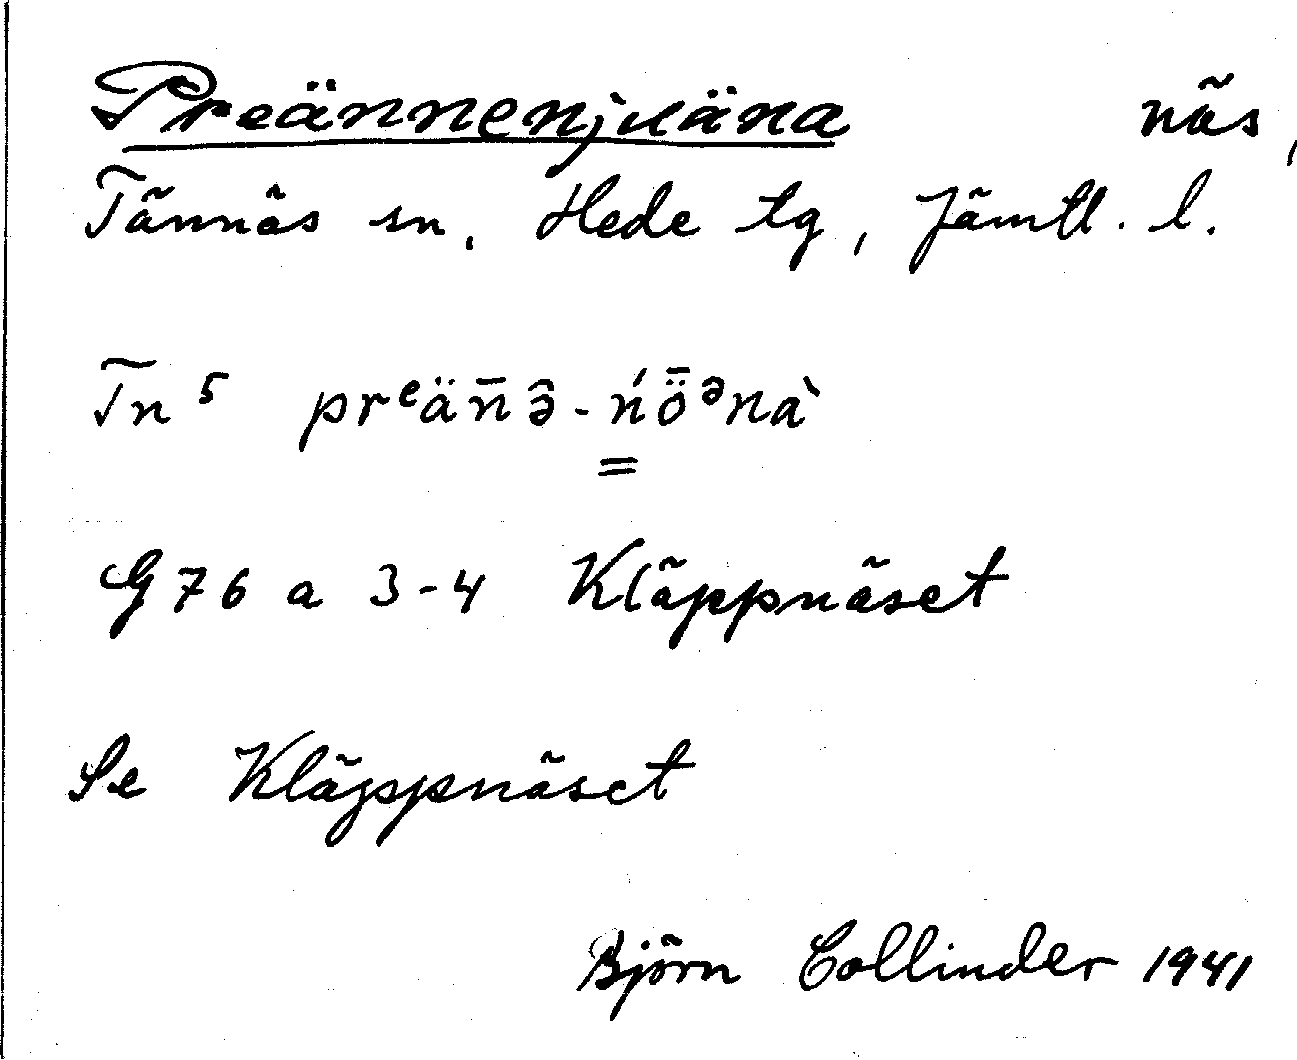 Preännenjuäna näs,
Tännäs sn, Hede tg, Jämtl. l.
Tn⁵ prᵉän̄ə̂-ń̄ȫᵊnà
=
G 76 a 3-4 Kläppnäset
Se Kläppnäset
Björn Collinder 1941